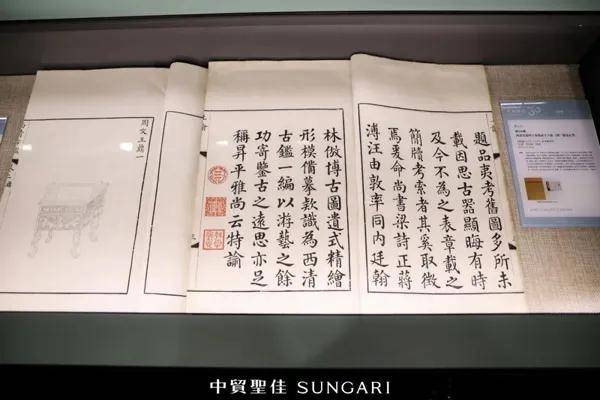 題品夷考舊圖多所未
載因思古器顯晦有時
及今不為之表章載之
簡牘考索者其奚取徵
焉爰命尚書梁詩正蔣
溥汪由敦率同内廷翰
林倣博古圖遺式精繪
形模備摹欵識為西清
古鑑一編以游藝之餘
功寄鑒古之遠思亦足
稱昇平雅尚云特諭
周文王鼎一
中貿聖佳 SUNGARI